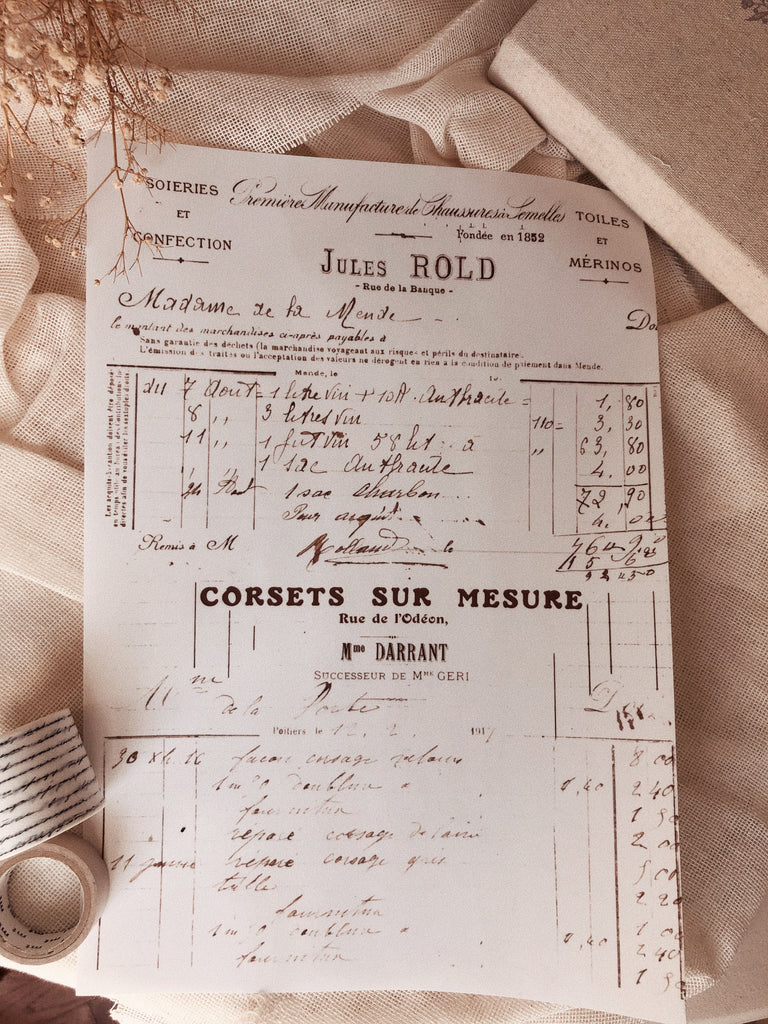 SOIERIES
ET
CONFECTION
Première Manufacture de Chaussures à Semelles
Fondée en 1852
TOILES
ET
MÉRINOS
JULES ROLD
- Rue de la Banque -
Madame de la Mende
Do
le montant des marchandises ci-après payables à
Sans garantie des déchets (la marchandise voyageant aux risques et périls du destinataire.
L'émission des traites ou l'acceptation des valeurs ne dérogent en rien à la condition de paiement dans Mende.
Mende, le
du 7 Aout = 1 litre vin + 10 Anthracite = 1, 80
8 " 3 litres vin 110 = 3, 30
11 " 1 fut vin 58 lit à " 63, 80
1 sac Anthracite 4. 00
24 Aout 1 sac charbon 72, 90
Pour acquit 4.
Remis à M
le
CORSETS SUR MESURE
Rue de l'Odéon,
Mme DARRANT
SUCCESSEUR DE MME GERI
de la Porte
Poitiers le 12. 2. 1917
30 façon corsage velours 8 00
doublure 2 40
fourniture 1 50
réparé corsage de laine 2 00
11 janvier réparé corsage gris 5 00
tulle 2 20
fourniture 1 00
doublure 2 40
fourniture 1 50